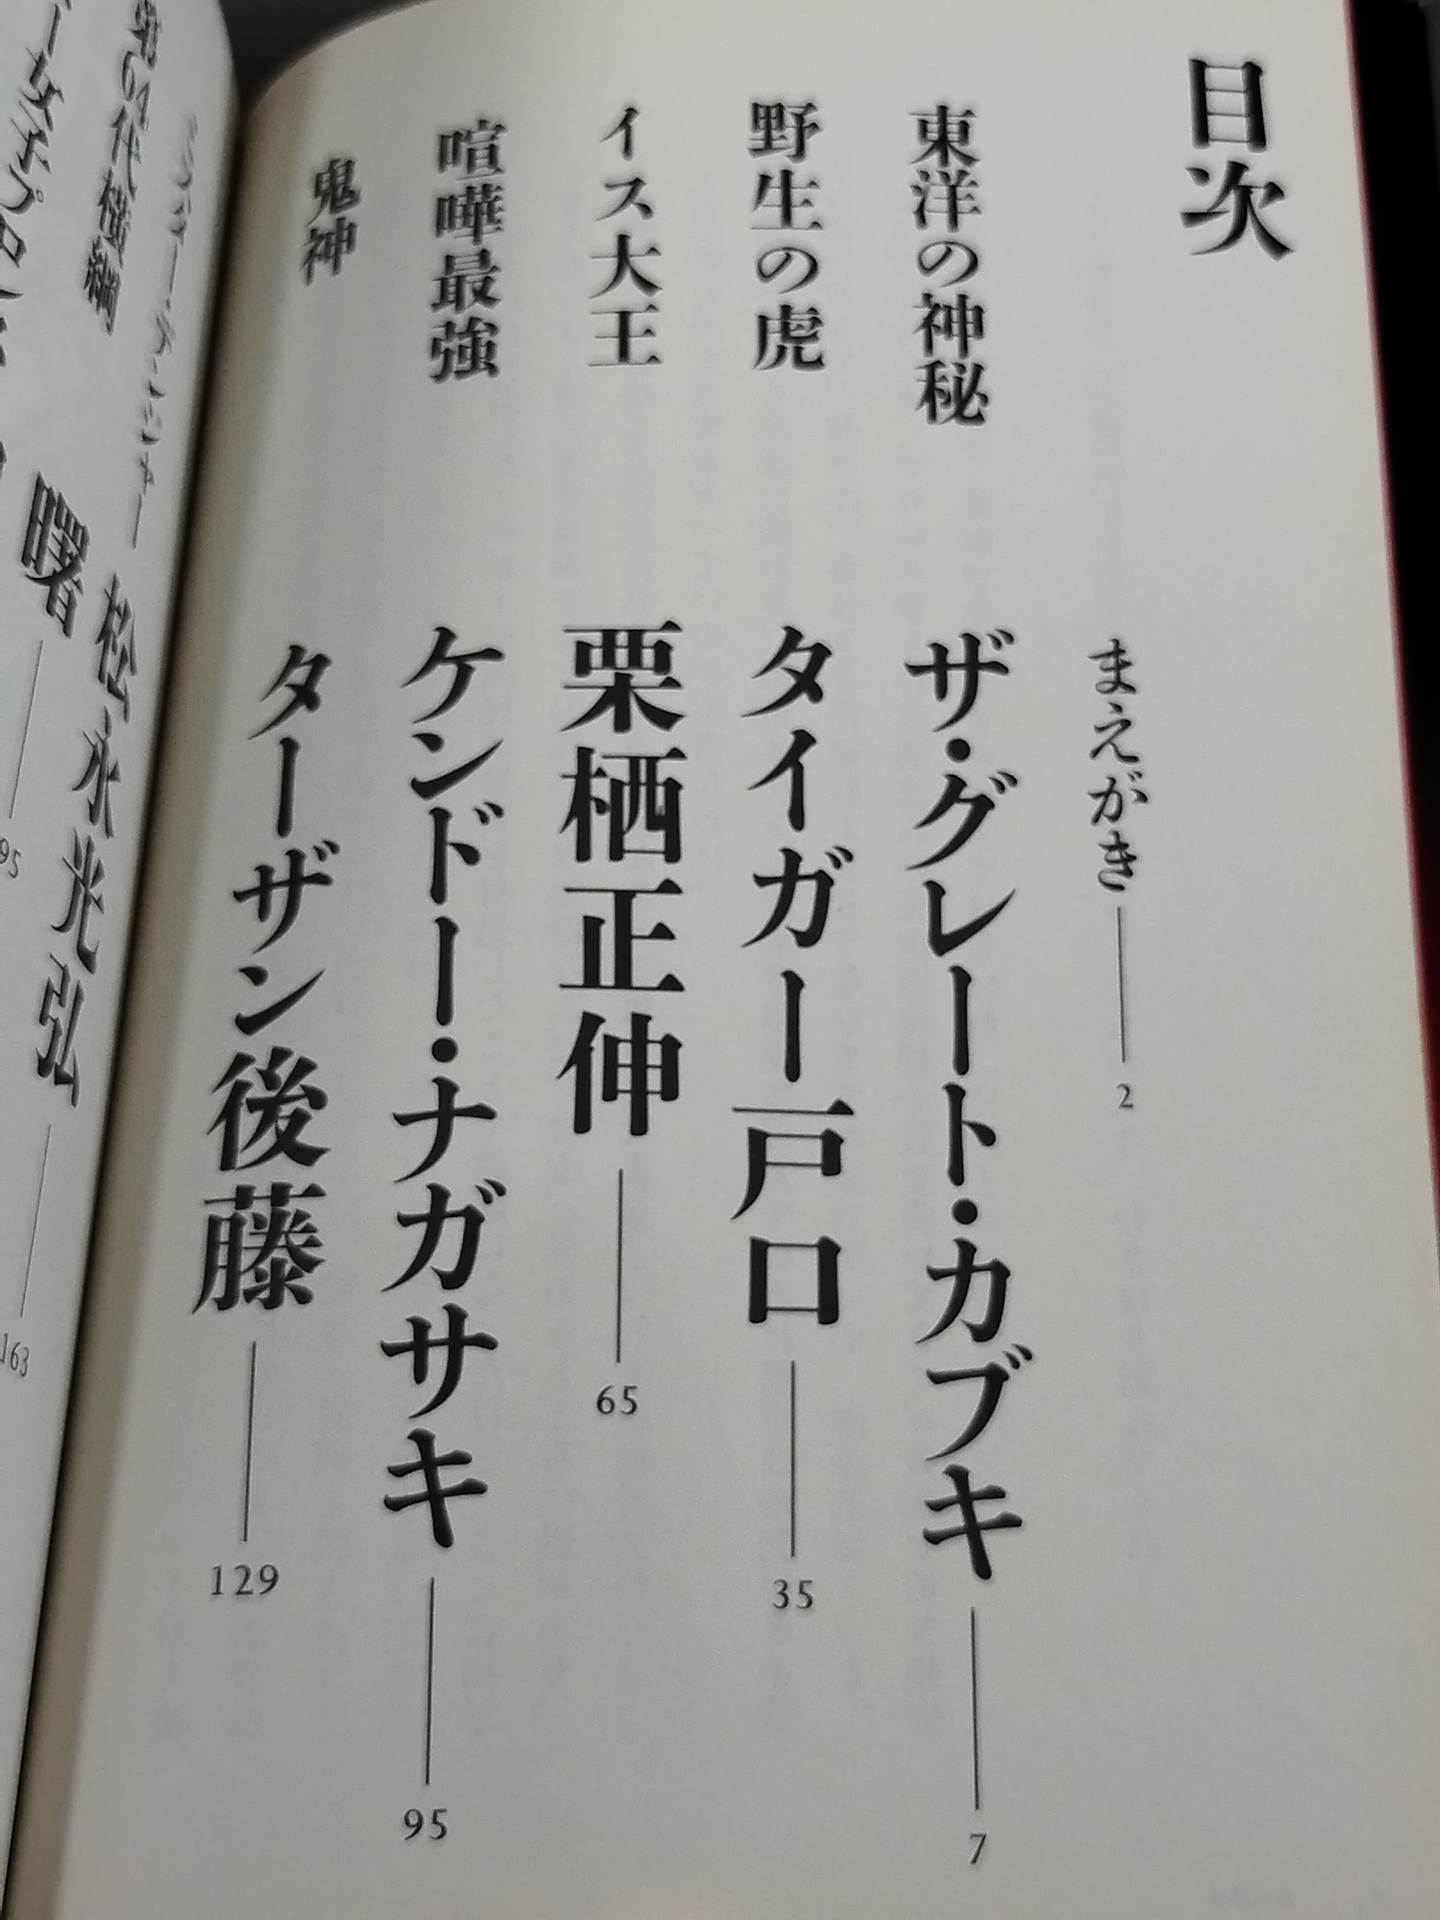 目次
まえがき 2
東洋の神秘 ザ・グレート・カブキ 7
野生の虎 タイガー戸口 35
イス大王 栗栖正伸 65
喧嘩最強 ケンドー・ナガサキ 95
鬼神 ターザン後藤 129
松永光弘 163
第64代横綱 曙